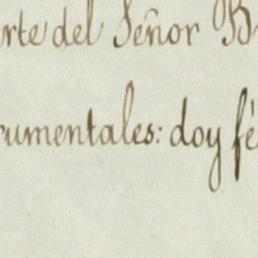 rte del Señor B
rumentales: doy fé